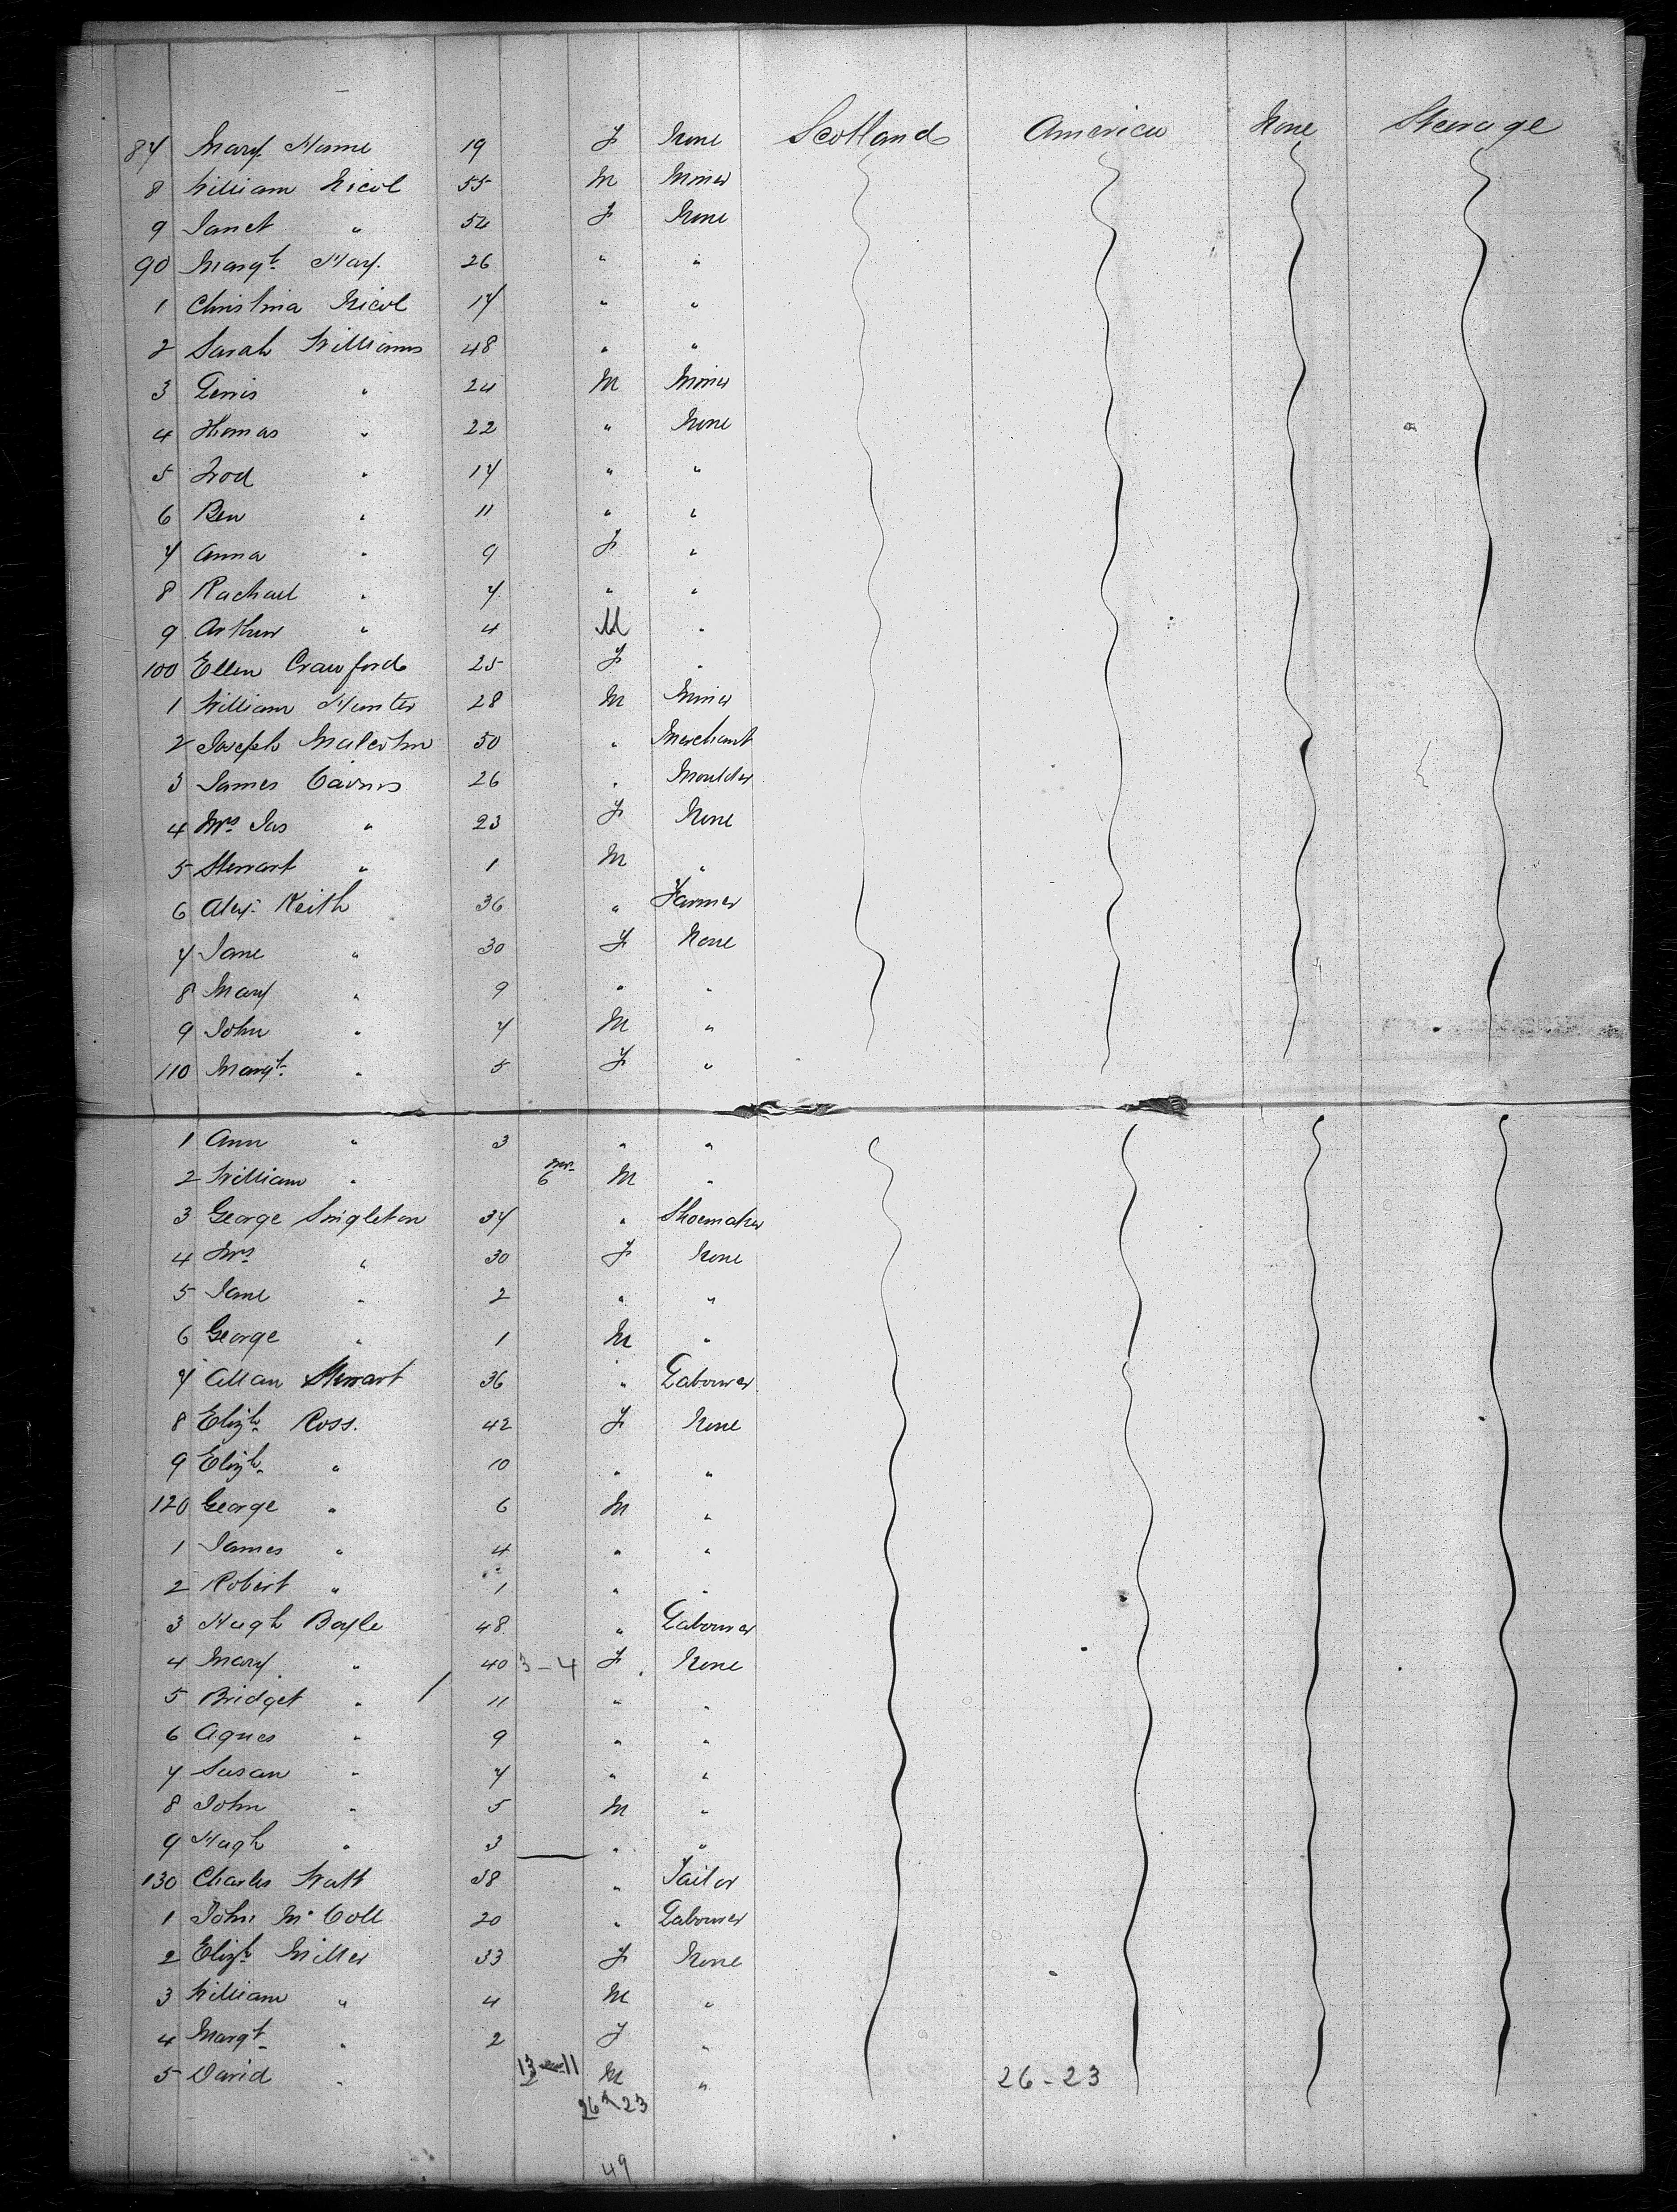 87 Mary Hume 19 F None Scotland America None Steerage
8 William Nicol 55 M Miner
9 Janet " 54 F None
90 Margt. Hay. 26 " "
1 Christina Nicol 17 " "
2 Sarah Williams 48 " "
3 Lewis " 24 M Miner
4 Thomas " 22 " None
5 Fred " 17 " "
6 Ben " 11 " "
7 Anna " 9 F "
8 Rachael " 7 " "
9 Arthur " 4 M "
100 Ellen Crawford 25 F "
1 William Hunter 28 M Miner
2 Joseph Malcolm 50 " Merchant
3 James Cairns 26 " Moulder
4 Mrs Jas " 23 F None
5 Stewart " 1 M "
6 Alex. Keith 36 " Farmer
7 Jane " 30 F None
8 Mary " 9 " "
9 John " 7 M "
110 Margt. " 5 F "
1 Ann " 3 " "
2 William " 6 M "
3 George Singleton 37 " Shoemaker
4 Mrs " 30 F None
5 Jane " 2 " "
6 George " 1 M "
7 Allan Stewart 36 " Labourer
8 Elizh. Ross. 42 F None
9 Elizh. " 10 " "
120 George " 6 M "
1 James " 4 " "
2 Robert " 1 " "
3 Hugh Boyle 48 " Labourer
4 Mary " 40 3-4 F None
5 Bridget " 11 " "
6 Agnes " 9 " "
7 Susan " 7 " "
8 John " 5 M "
9 Hugh " 3 " "
130 Charles Watt 38 " Tailor
1 John McColl 20 " Labourer
2 Elizh. Miller 33 F None
3 William " 4 M "
4 Margt. " 2 F "
5 David " M " 26-23
26 23
49